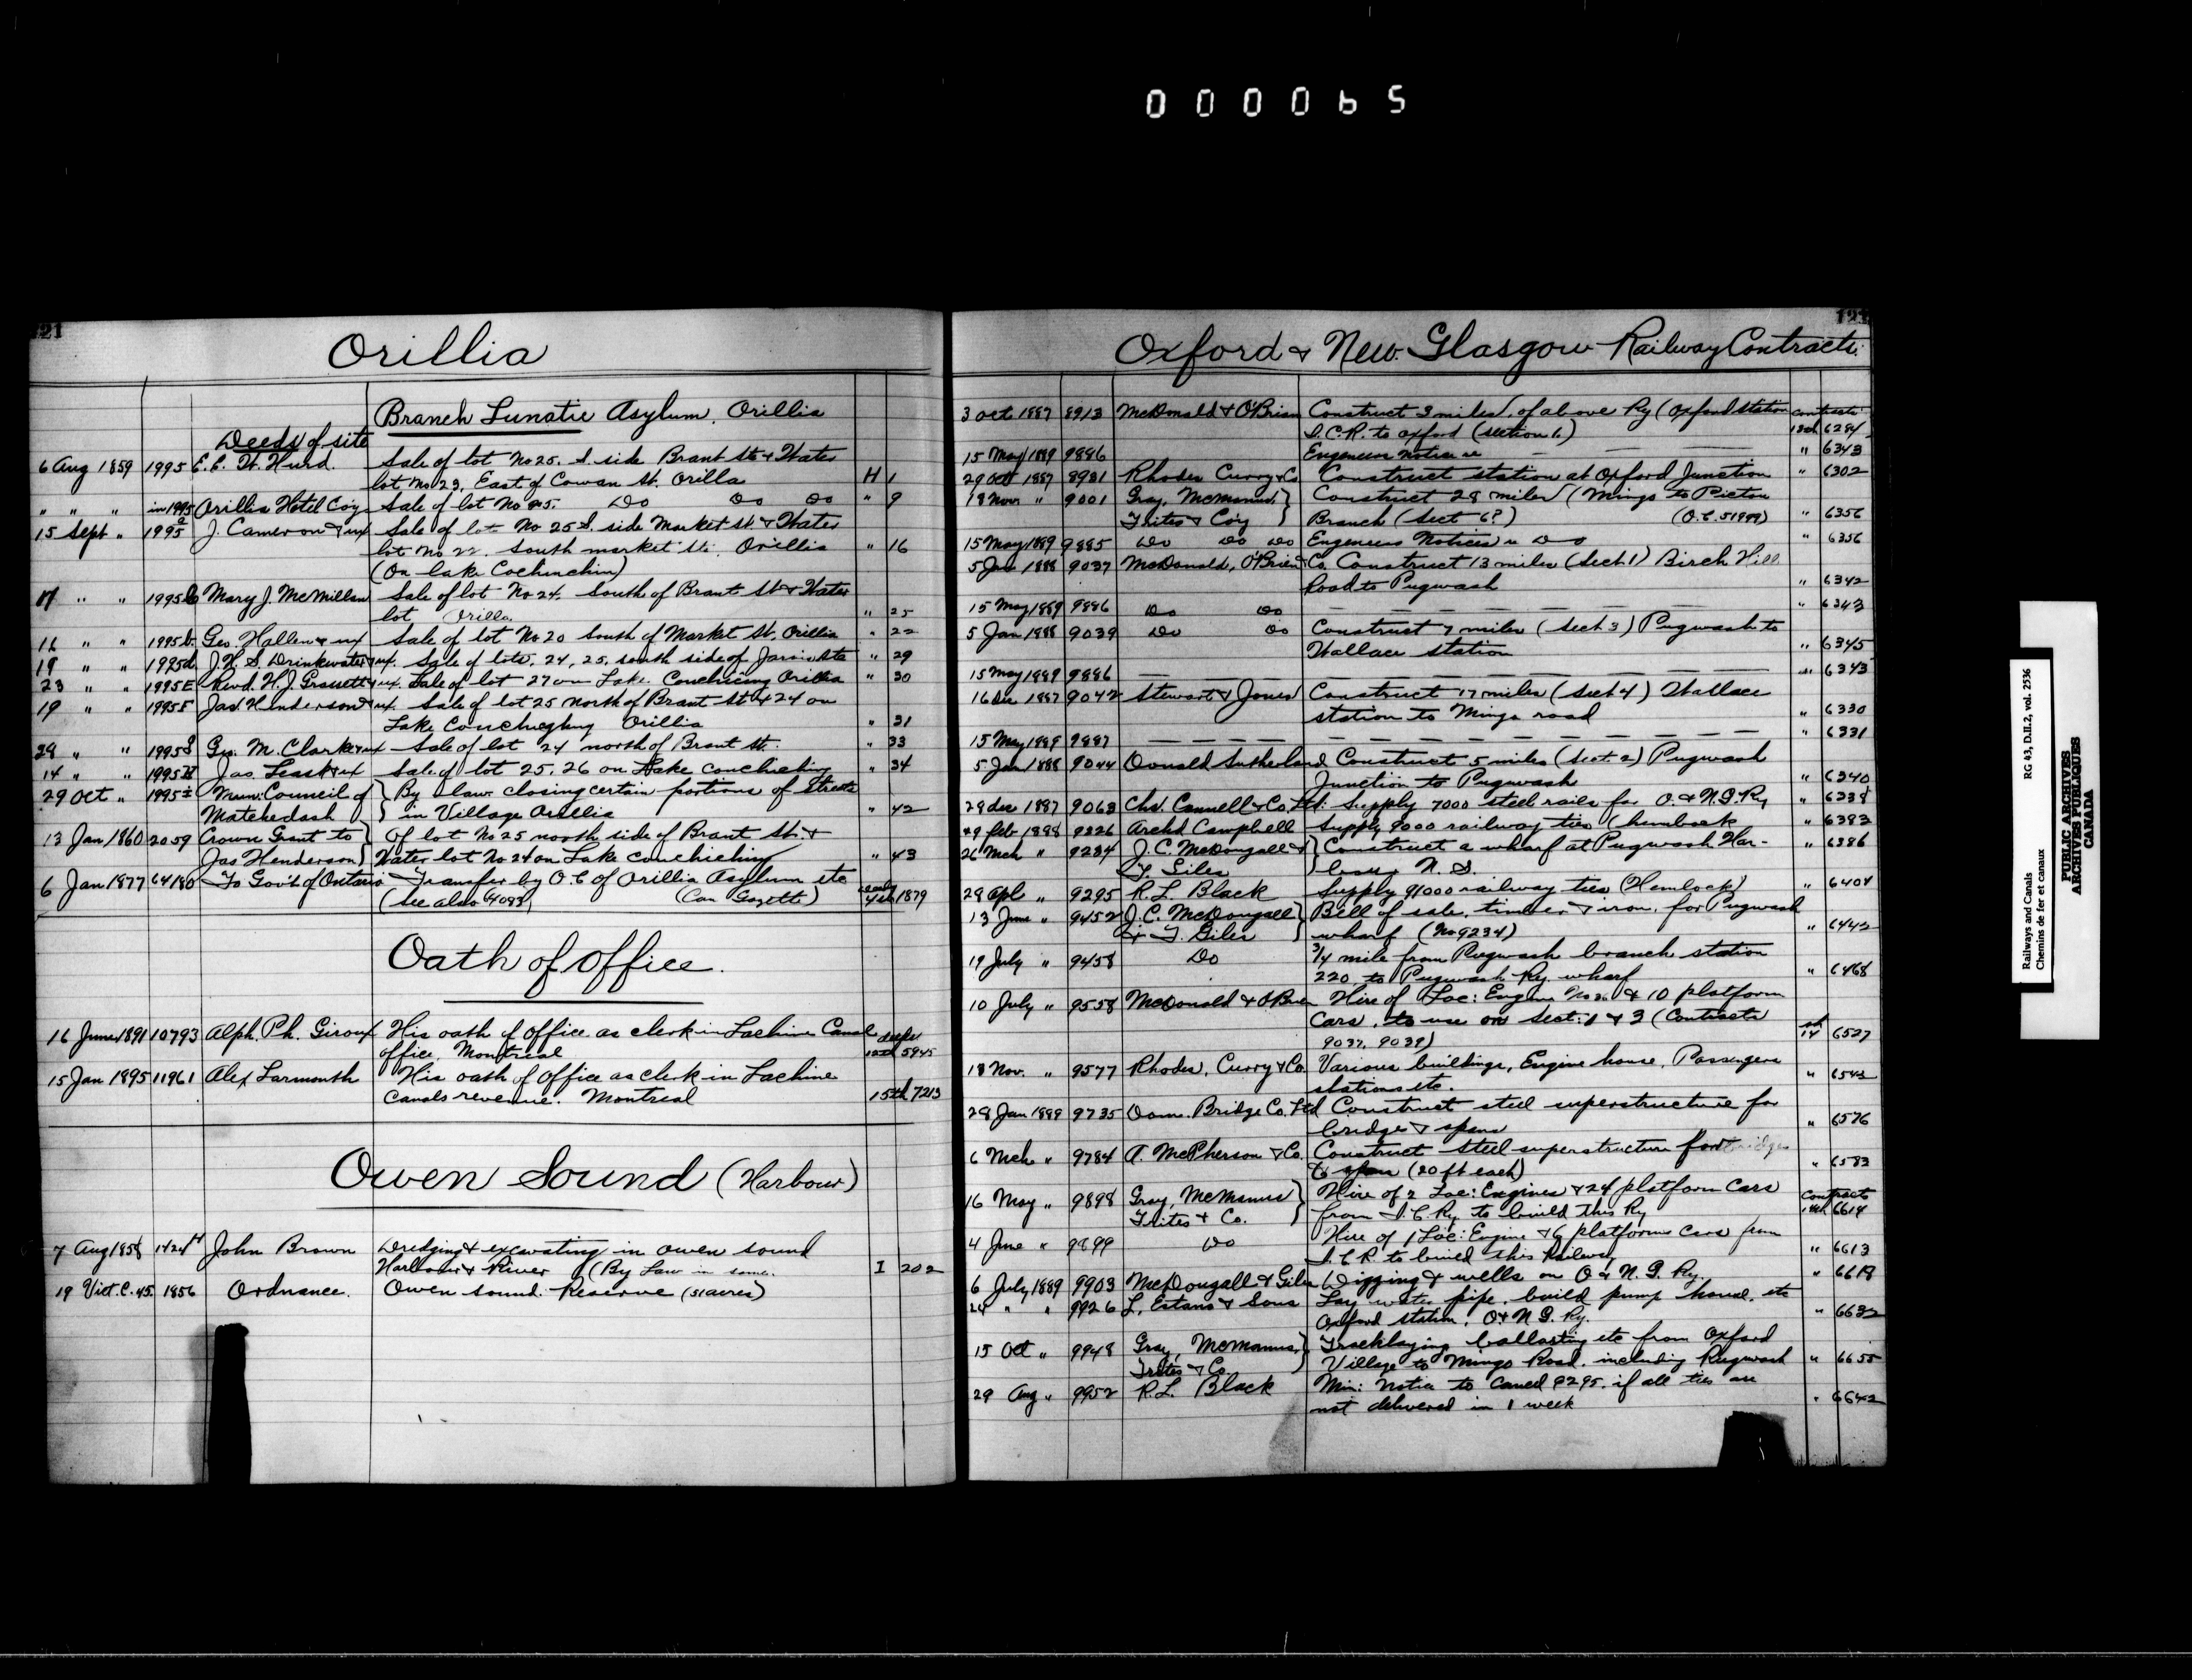 000065
121
Orillia
Branch Lunatic Asylum, Orillia
Deeds of site
6 Aug 1859 1995 E. E. W. Hurd. Sale of lot No 25. S. side Brant St & Water
lot No 23, East of Cowan St. Orilla H 1
" " " in 1995 Orillia Hotel Coy Sale of lot No 25. Do Do Do " 9
15 Sept " 1995 a J. Cameron & ux Sale of lot No 25 S. side Market St. & Water
lot No 22. South market St. Orillia " 16
(On lake Cochinchin)
17 " " 1995 Mary J. McMillan Sale of lot No 24. South of Brant St & Water
lot Orilla " 25
16 " " 1995 b. Geo. Hallen & ux Sale of lot No 20 South of Market St. Orillia " 22
19 " " 1995d J. H. S. Drinkwater & ux. Sale of lots. 24, 25. south side of Jarvis Sts " 29
23 " " 1995 E Revd. H. J. Grassett & ux. Sale of lot 27 on Lake. Conchicing Orillia " 30
19 " " 1995 F Jas Henderson & ux. Sale of lot 25 North of Brant St & 24 on
Lake Orillia " 31
28 " " 1995 g Geo. M. Clark & ux Sale of lot 24 north of Brant St. " 33
14 " " 1995 H Jas. Leask & ux Sale of lot 25, 26 on Lake conchiching " 34
29 Oct " 1995 i Mun: Council of } By law closing certain portions of streets
Matchedash } in Village Orillia " 42
13 Jan 1860 2059 Crown Grant to } Of lot No 25 north side of Brant St. &
Jas Henderson } Water lot No 24 on Lake conchiching " 43
6 Jan 1877 64180 To Gov't of Ontario Transfer by O.C of Orillia Asylum etc
(See also 4083) (Can Gazette) 4th 1879
Oath of Office.
16 June 1891 10793 Alph. Ph. Giroux His oath of Office as clerk in Lachine Canal
office. Montreal 12th 5945
15 Jan 1895 11961 Alex Larmonth His oath of Office as clerk in Lachine
Canals revenue. Montreal 15th 7213
Owen Sound (Harbour)
7 Aug 1858 1424 H John Brown Dredging & excavating in Owen sound
Harbour & River (By Law in same. I 202
19 Vict. C. 45. 1856 Ordnance. Owen sound. Reserve (51 acres)
Oxford & New Glasgow Railway Contracts.
3 Oct 1887 8913 McDonald & O'Brien Construct 3 miles of above Ry (Oxford station contracts
I.C.R. to Oxford (section 1.) 13th 6284
15 May 1889 9886 Engineers Notice re " 6343
29 Oct 1887 8981 Rhodes Curry & Co Construct station at Oxford Junction " 6302
18 Nov. " 9001 Gray, McManus, } Construct 28 miles (Mingo to Pictou
Trites & Coy } Branch (Sect 6?) (O.C. 51999) " 6356
15 May 1889 9885 Do Do Do Engineers Notices re Do " 6356
5 Jan 1888 9037 McDonald, O'Brien & Co. Construct 13 miles (Sect. 1) Birch Hill
Road to Pugwash " 6342
15 May 1889 9886 Do Do " 6343
5 Jan 1888 9039 Do Do Construct 7 miles (Sect. 3) Pugwash to
Wallace station " 6345
15 May 1889 9886 " 6343
16 Dec 1887 9042 Stewart & Jones Construct 17 miles (Sect. 4) Wallace
station to Mingo road " 6330
15 May 1889 9887 " 6331
5 Jan 1888 9044 Donald Sutherland Construct 5 miles (Sect. 2) Pugwash
Junction to Pugwash " 6340
28 Dec 1887 9063 Chs. Cammell & Co. Ltd: Supply 7000 steel rails for O. & N.G. Ry " 6338
29 Feb 1888 9226 Archd Campbell Supply 9000 railway ties (hemlock " 6383
26 Mch " 9234 J. C. McDougall & } Construct a wharf at Pugwash Har-
T. Giles bour N. S. " 6386
28 Apl " 9295 R. L. Black Supply 91000 railway ties (Hemlock) " 6404
13 June " 9452 J. C. McDougall } Bill of sale, timber & iron, for Pugwash
& T. Giles } wharf (No 9234) " 6442
19 July " 9458 Do 3/4 mile from Pugwash branch station
220 to Pugwash Ry wharf " 6468
10 July " 9558 McDonald & O'Brien Hire of Loc: Engine No 26 & 10 platform
Cars, to use on Sect: 1 & 3 (Contracts
9037, 9039) 14th 6527
18 Nov. " 9577 Rhodes, Curry & Co. Various buildings, Engine house, Passengers
stations etc. " 6543
28 Jan 1889 9735 Dom. Bridge Co. Ltd Construct steel superstructure for
bridge & spans " 6576
6 Mch " 9784 A. McPherson & Co. Construct steel superstructure for bridge
6 span (20 ft each) " 6583
16 May " 9898 Gray, McManus } Hire of 2 Loc: Engines & 24 platform Cars Contracts
Trites & Co. } from I.C. Ry to build this Ry 14th 6614
4 June " 9899 Do Hire of 1 Loc: Engine & 6 platforms Cars from
I.C.R. to build this Railway " 6613
6 July 1889 9903 McDougall & Giles Digging 4 wells on O & N. G. Ry. " 6618
24 " " 9926 L. Estano & Sons Lay water pipe, build pump house. etc
Oxford station, O & N G. Ry. " 6632
15 Oct " 9948 Gray, McManus, } Tracklaying ballasting etc from Oxford
Trites & Co. } Village to Mingo Road, including Pugwash " 6655
29 Aug " 9952 R. L. Black Min: notice to cancel 9295. if all ties are
not delivered in 1 week " 6642
Railways and Canals RG 43, D.II.2, vol. 2536
Chemins de fer et canaux
PUBLIC ARCHIVES
ARCHIVES PUBLIQUES
CANADA